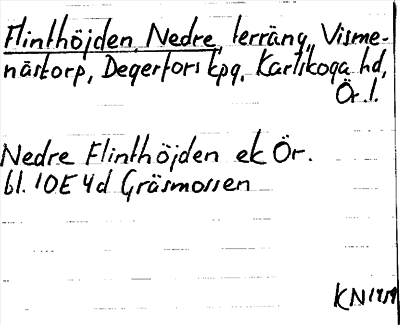 Flinthöjden, Nedre, terräng, Visme-
nästorp, Degerfors kpg, Karlskoga hd,
Ör. l.
Nedre Flinthöjden ek Ör.
bl. 10E 4d Gräsmossen
KN